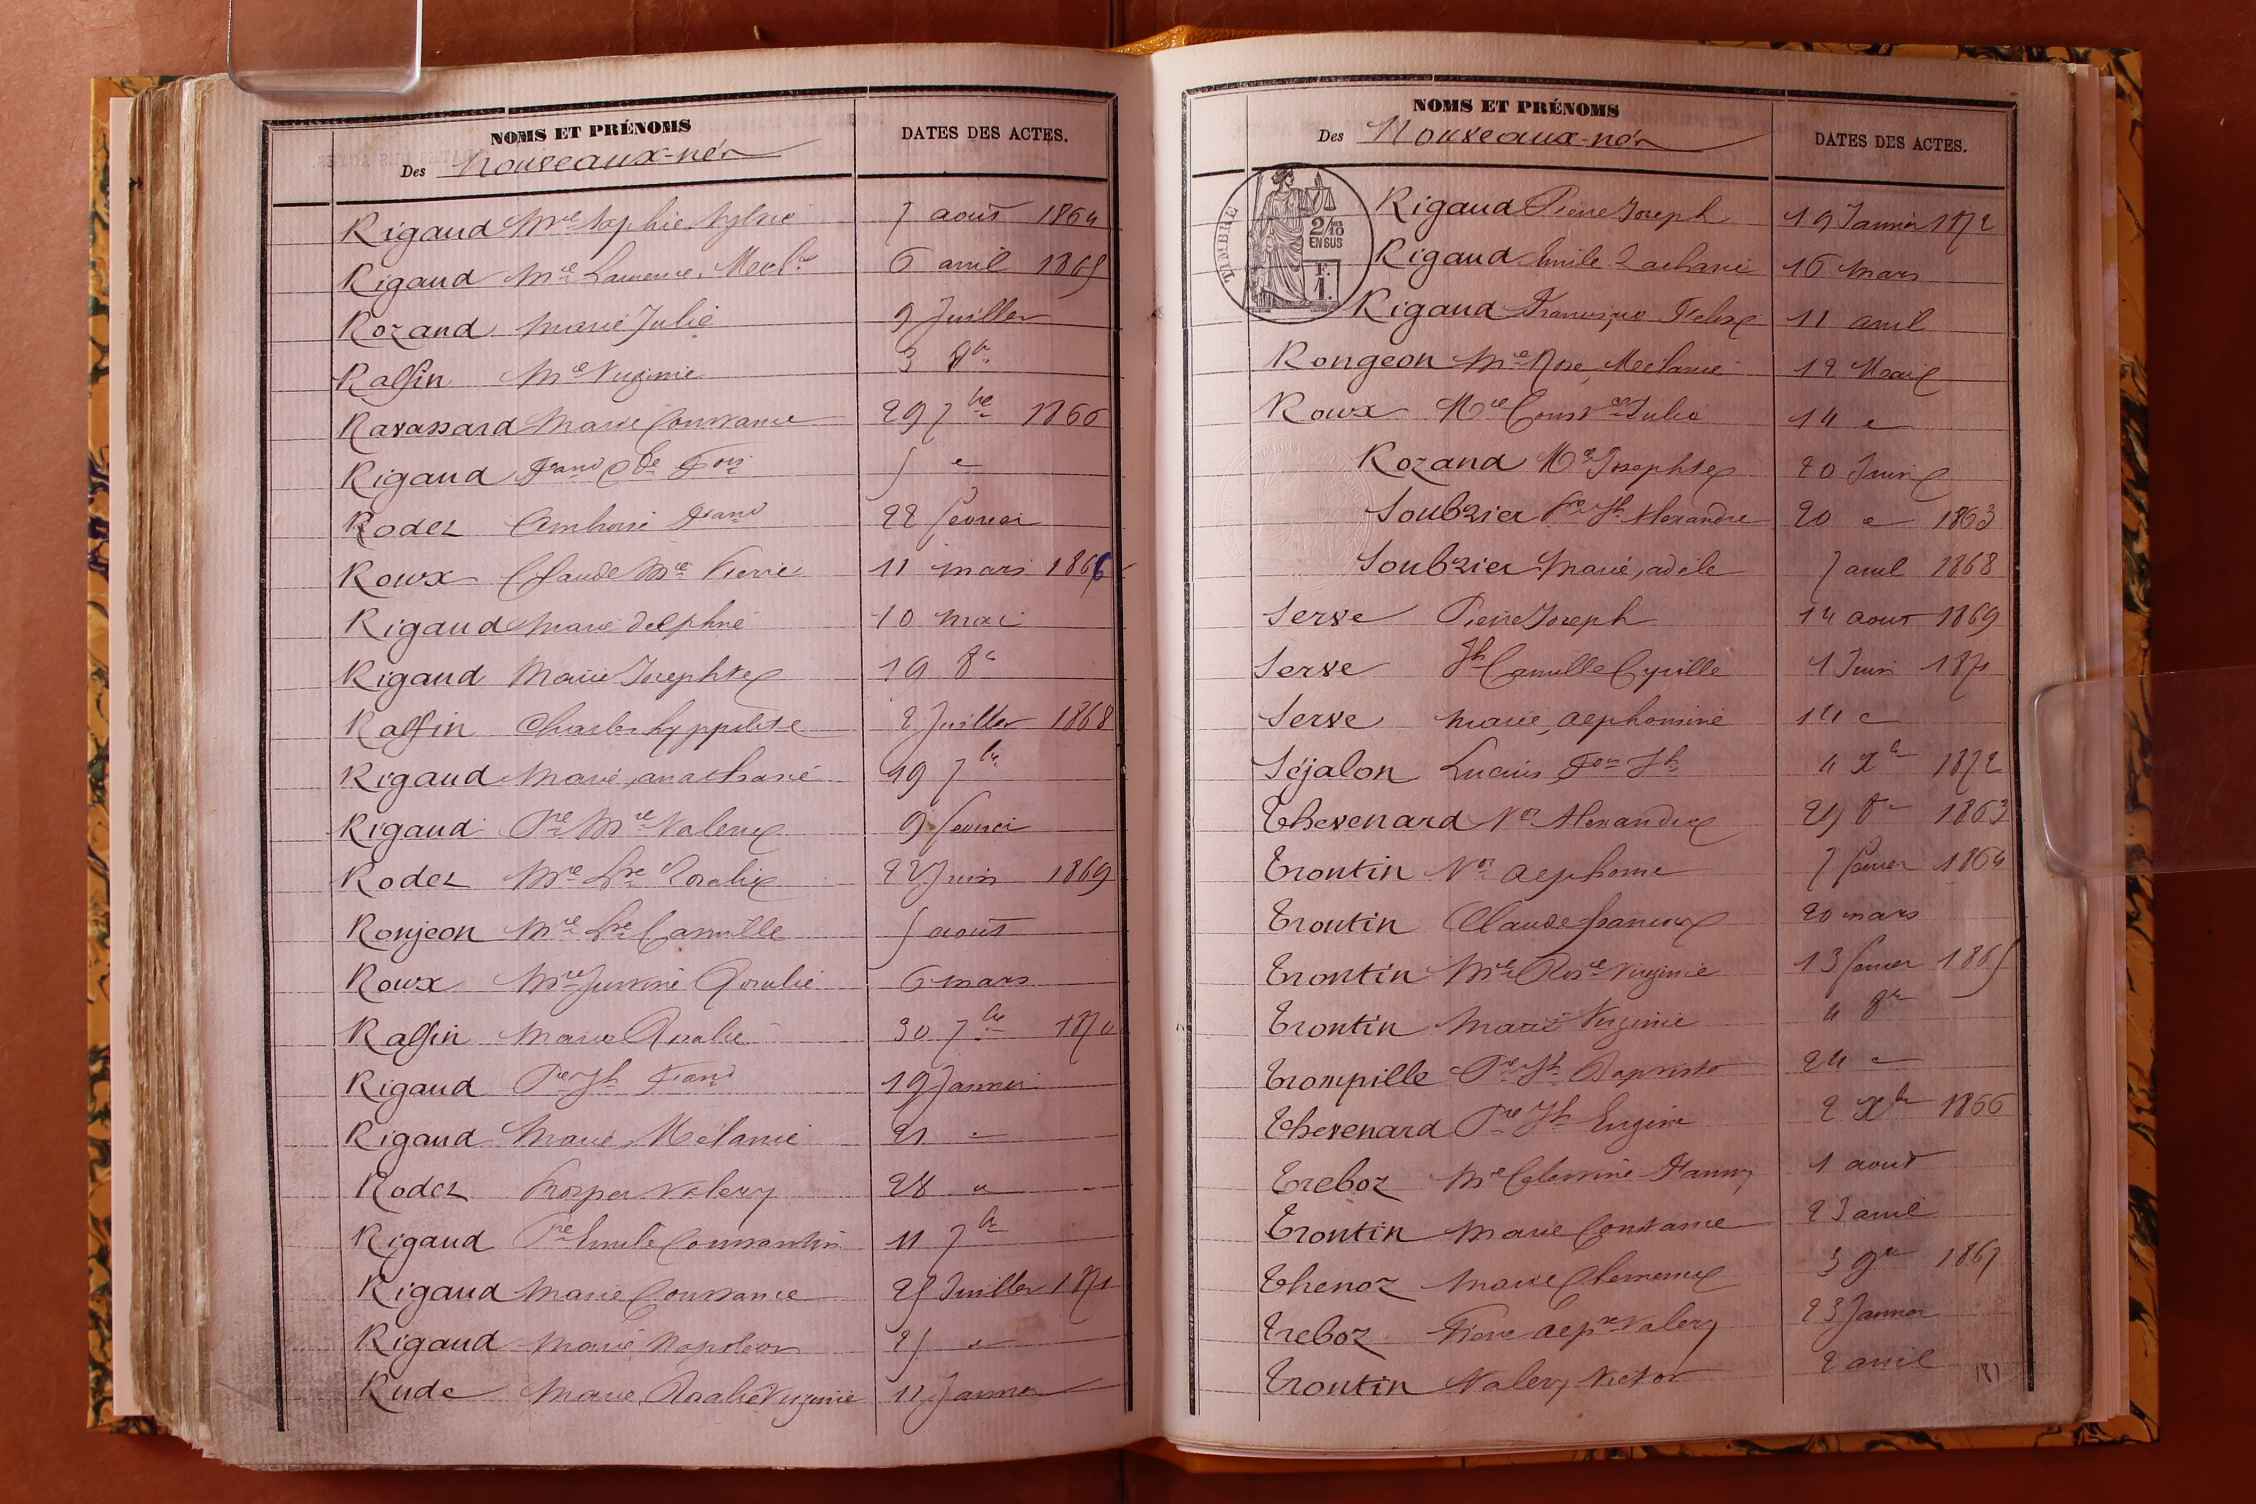 NOMS ET PRÉNOMS
Des Nouveaux-nés
DATES DES ACTES.
Rigaud Mie Sophie Sylvie 7 aout 1864
Rigaud Mie Laurence, 6 avril 1865
Rozand Marie Julie 9 Juillet
Raffin Mie Virginie 3 8bre
Ravassard Marie Constance 29 7bre 1866
Rigaud 5 "
Rodet Ambroise 22 fevrier
Roux Claude Mie Pierre 11 mars 1866
Rigaud Marie delphine 10 mai
Rigaud Marie Josephte 19 8e
Raffin Charles hyppolite 2 Juillet 1868
Rigaud Marie, anathasie 19 7bre
Rigaud Pre Mie Valery 9 fevrier
Rodet Mie Rosalie 22 Juin 1869
Ronjeon Mie Camille 5 aout
Roux Mie Justine Rosalie 6 mars
Raffin Marie Rosalie 30 7bre 1870
Rigaud Pre Jh 19 Janvier
Rigaud Marie, Mélanie 21 "
Rodet Prosper Valery 28 "
Rigaud Pre Emile Constantin 11 7bre
Rigaud Marie Constance 25 Juillet 1871
Rigaud Marie Napoleon 25 "
Rude Marie, Rosalie Virginie 11 Janvier
NOMS ET PRÉNOMS
Des Nouveaux-nés
DATES DES ACTES.
TIMBRE
2/10
EN SUS
F.
1.
Rigaud Pierre Joseph 19 Janvier 1872
Rigaud Emile Zacharie 16 mars
Rigaud Francisque Felix 11 avril
Rongeon Mie Rose, Mélanie 12 Mai
Roux Mie Constce Julie 14 "
Rozand Mie Josephte 20 Juin
Soubrier Jh Alexandre 20 " 1863
Soubrier Marie, adele 7 avril 1868
Serve Pierre Joseph 14 aout 1869
Serve Jh Camille Cyrille 1 Juin 1871
Serve Marie, alphonsine 14 "
Séjalon Lucien Fois Jh 4 Xbre 1872
Thevenard Vor Alexandre 8e 1863
Trontin Vor alphonse 7 fevrier 1864
Trontin Claude francois 20 mars
Trontin Mie Rose Virginie 13 fevrier 1865
Trontin Marie Virginie 4 8bre
Trompille Pre Jh Baptiste 24 "
Thevenard Pre Jh Eugene 2 Xbre 1866
Treboz Mie Celestine Fanny 1 aout
Trontin Marie Constance 23 avril
Thenoz Marie Clemence 3 9bre 1867
Treboz Pierre Valery 23 Janvier
Trontin Valery Victor 2 avril
181